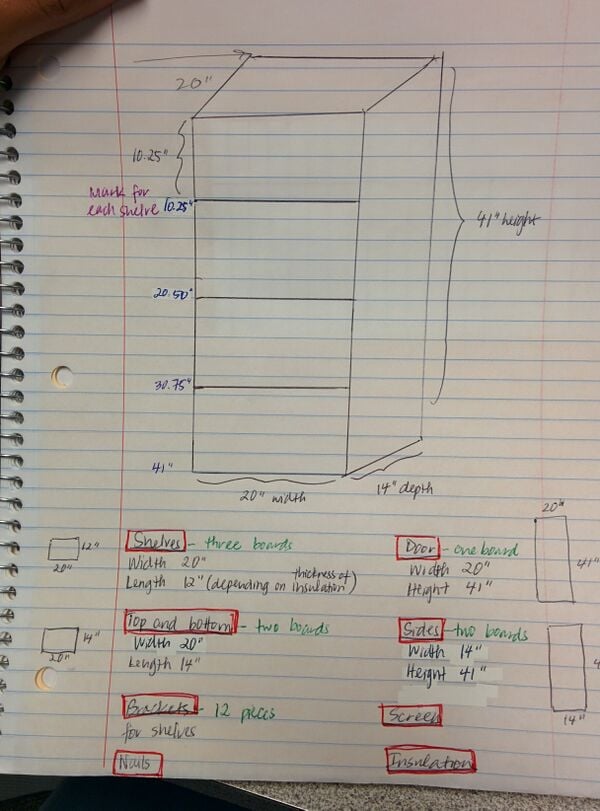 20"
10.25"
Mark for
each shelve 10.25"
41" height
20.50"
30.75"
41"
20" width
14" depth
12"
20"
Shelves - three boards
Width 20"
Length 12" (depending on thickness of insulation)
20"
41"
Door - one board
Width 20"
Height 41"
14"
20"
Top and bottom - two boards
Width 20"
Length 14"
Sides - two boards
Width 14"
Height 41"
14"
Brackets - 12 pieces
for shelves
Screen
Nails
Insulation